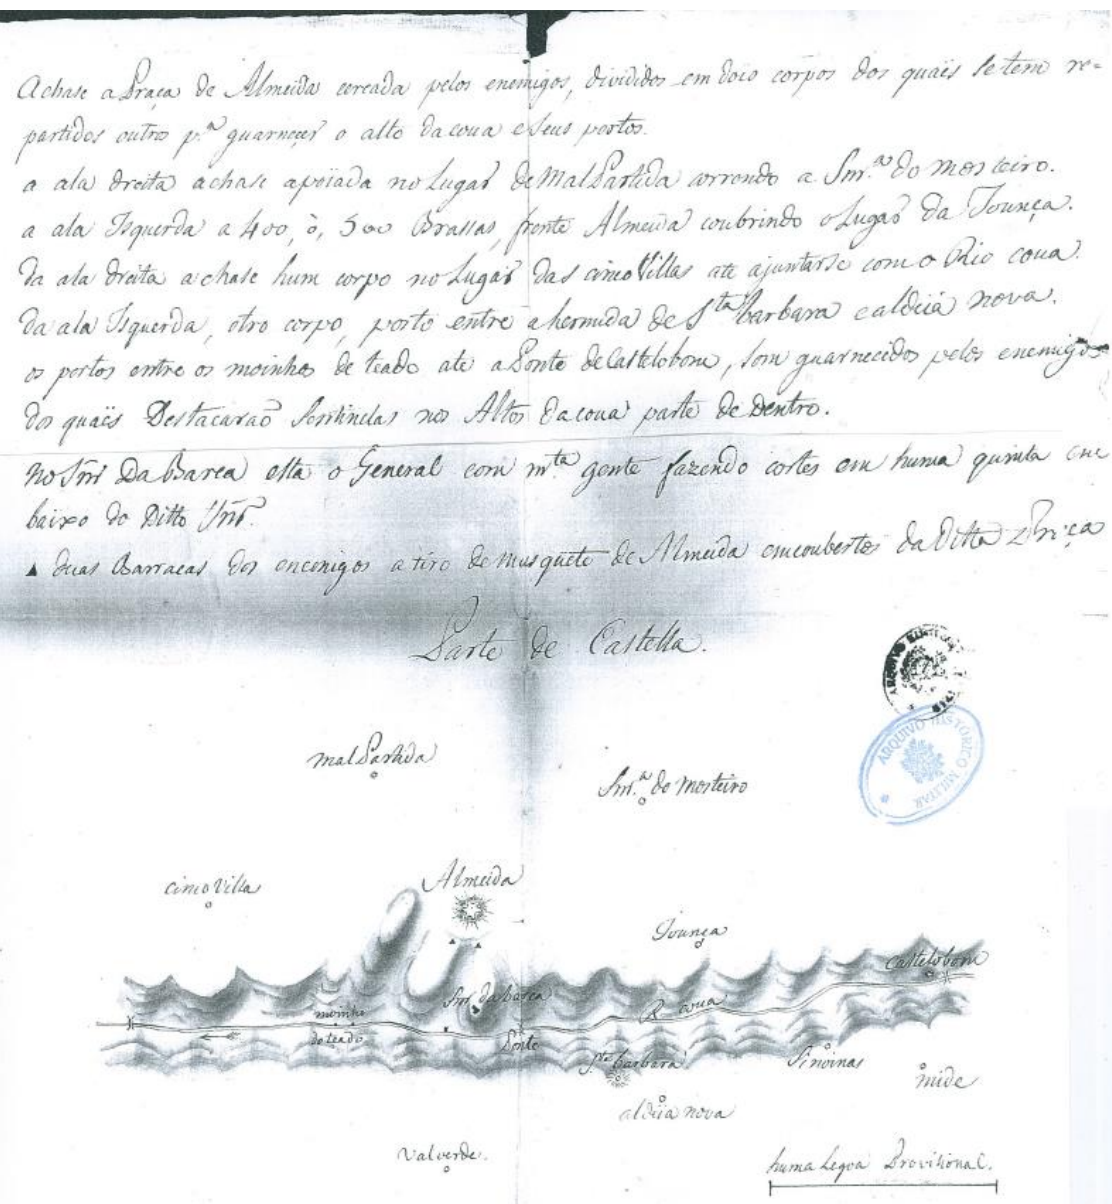 Achase a Praça de Almeida cercada pelos enemigos, divididos em dois corpos dos quaïs se tem re-
partidos outros p.ª guarneçer o alto da coua e seus portos.
a ala dreita achase apoïada no Lugar de MalPartida corrondo a Snr.ª do mosteiro.
a ala Isquerda a 400, ò, 500 Brassas, frente Almeida coubrindo o Lugar da Jounça.
da ala dreita achase hum corpo no Lugar das cinco Villas ate ajuntarse com o Rio coua.
da ala Isquerda, otro corpo, porto entre a hermida de S.ta barbara e aldeïa nova.
os portos entre os moinhos de teado ate a Ponte de Castelobom, som guarnecidos pelos enemigos
dos quaïs Destacaraõ Sentinelas nos Altos da coua parte de Dentro.
no Snr Da Barca esta o General com m.ta gente fazendo cortes em huma quinta em
baixo do Ditto Snr.
▲ duas Barracas dos enemigos a tiro de musquete de Almeida emcoubertos da Ditta Praça
Parte de Castella.
ARQUIVO HISTÓRICO MILITAR
malPartida
Snr.ª do Mosteiro
cinco Villa
Almeida
Jounça
Castelobom
Snr da barca
moinho
do teado
R coua
Ponte
S.ta barbara
Sinoinas
mide
aldeïa nova
Valverde.
huma Legoa Provisional.